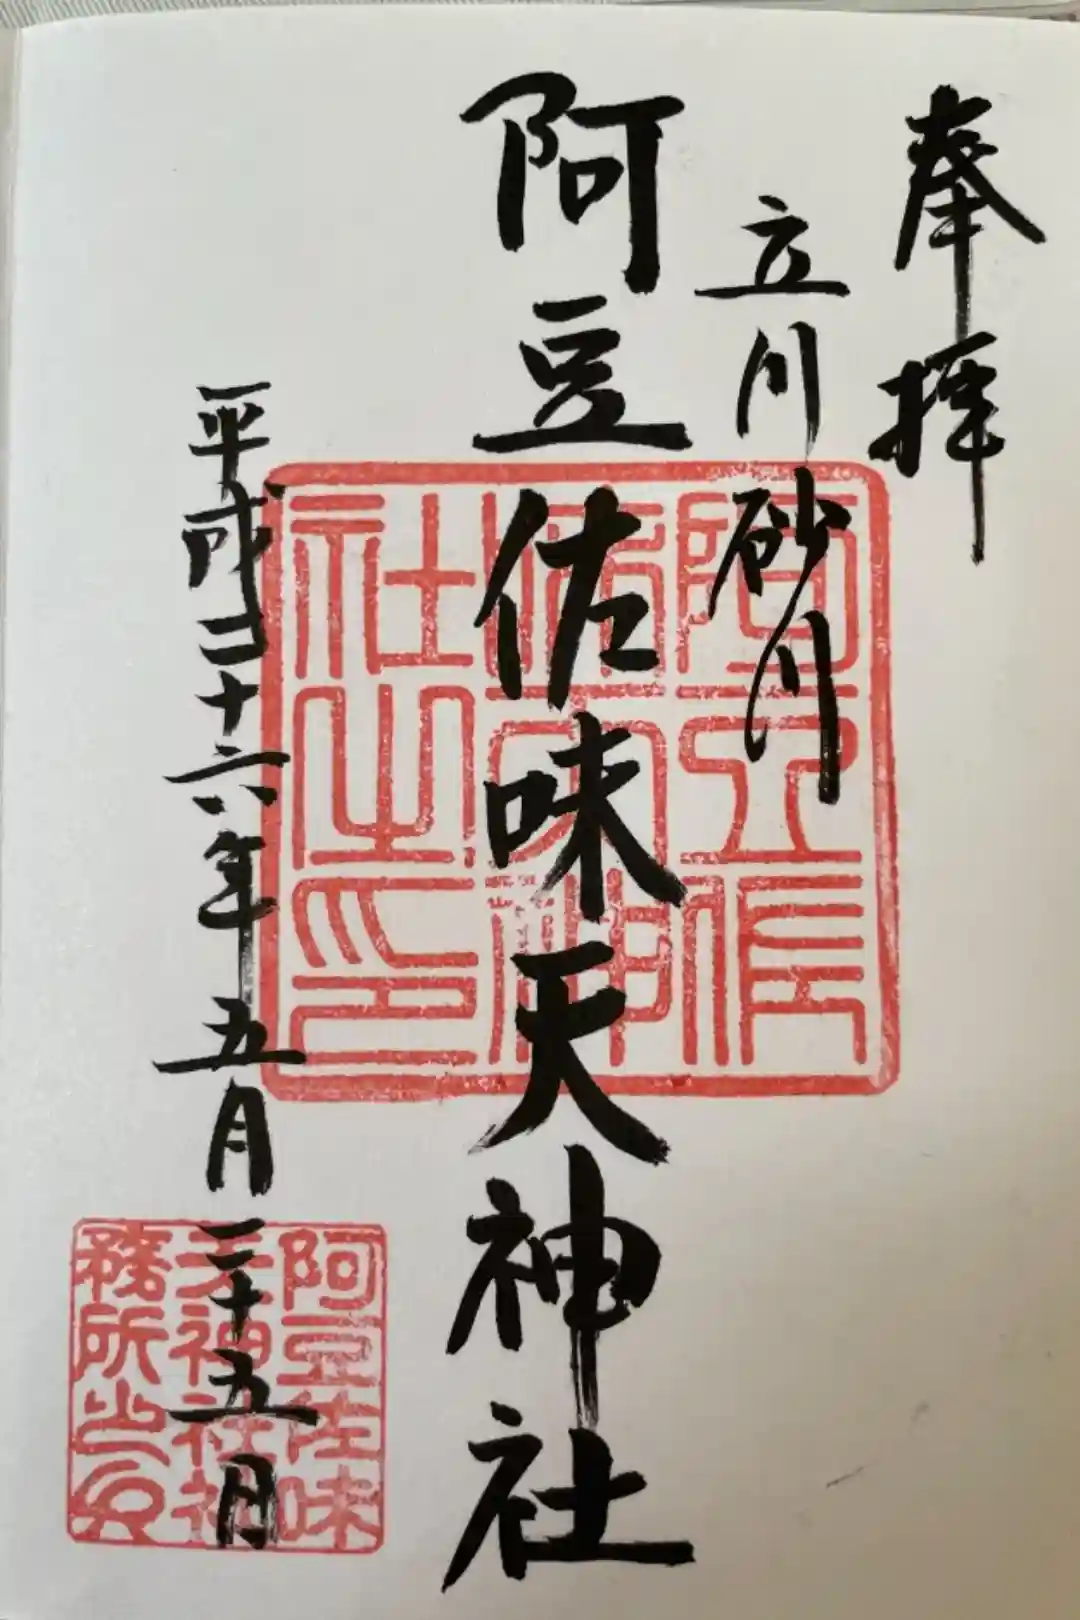 奉拝
立川砂川
阿豆佐味天神社
平成二十六年五月二十五日
阿豆佐
味天神
社之印
阿豆佐味
天神社社
務所之印